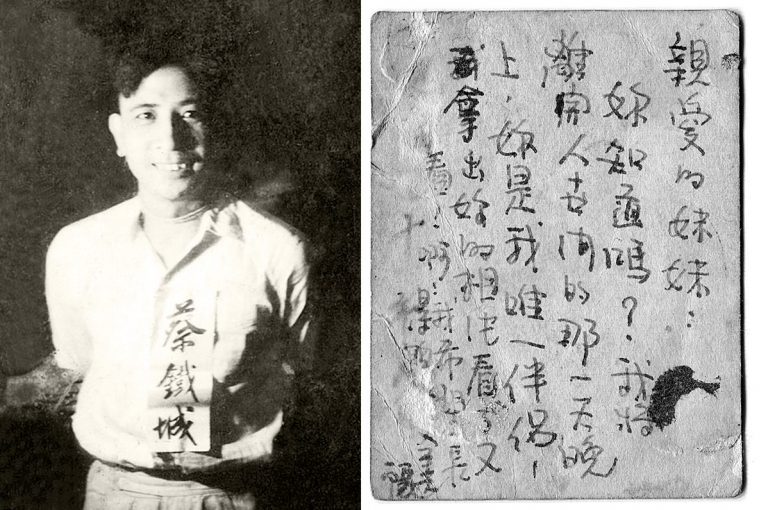 蔡鐵城
親愛的妹妹:
妳知道嗎?我將
離開人世間的那一天晚
上,妳是我唯一伴侶!
我拿出妳的相片看了又
看